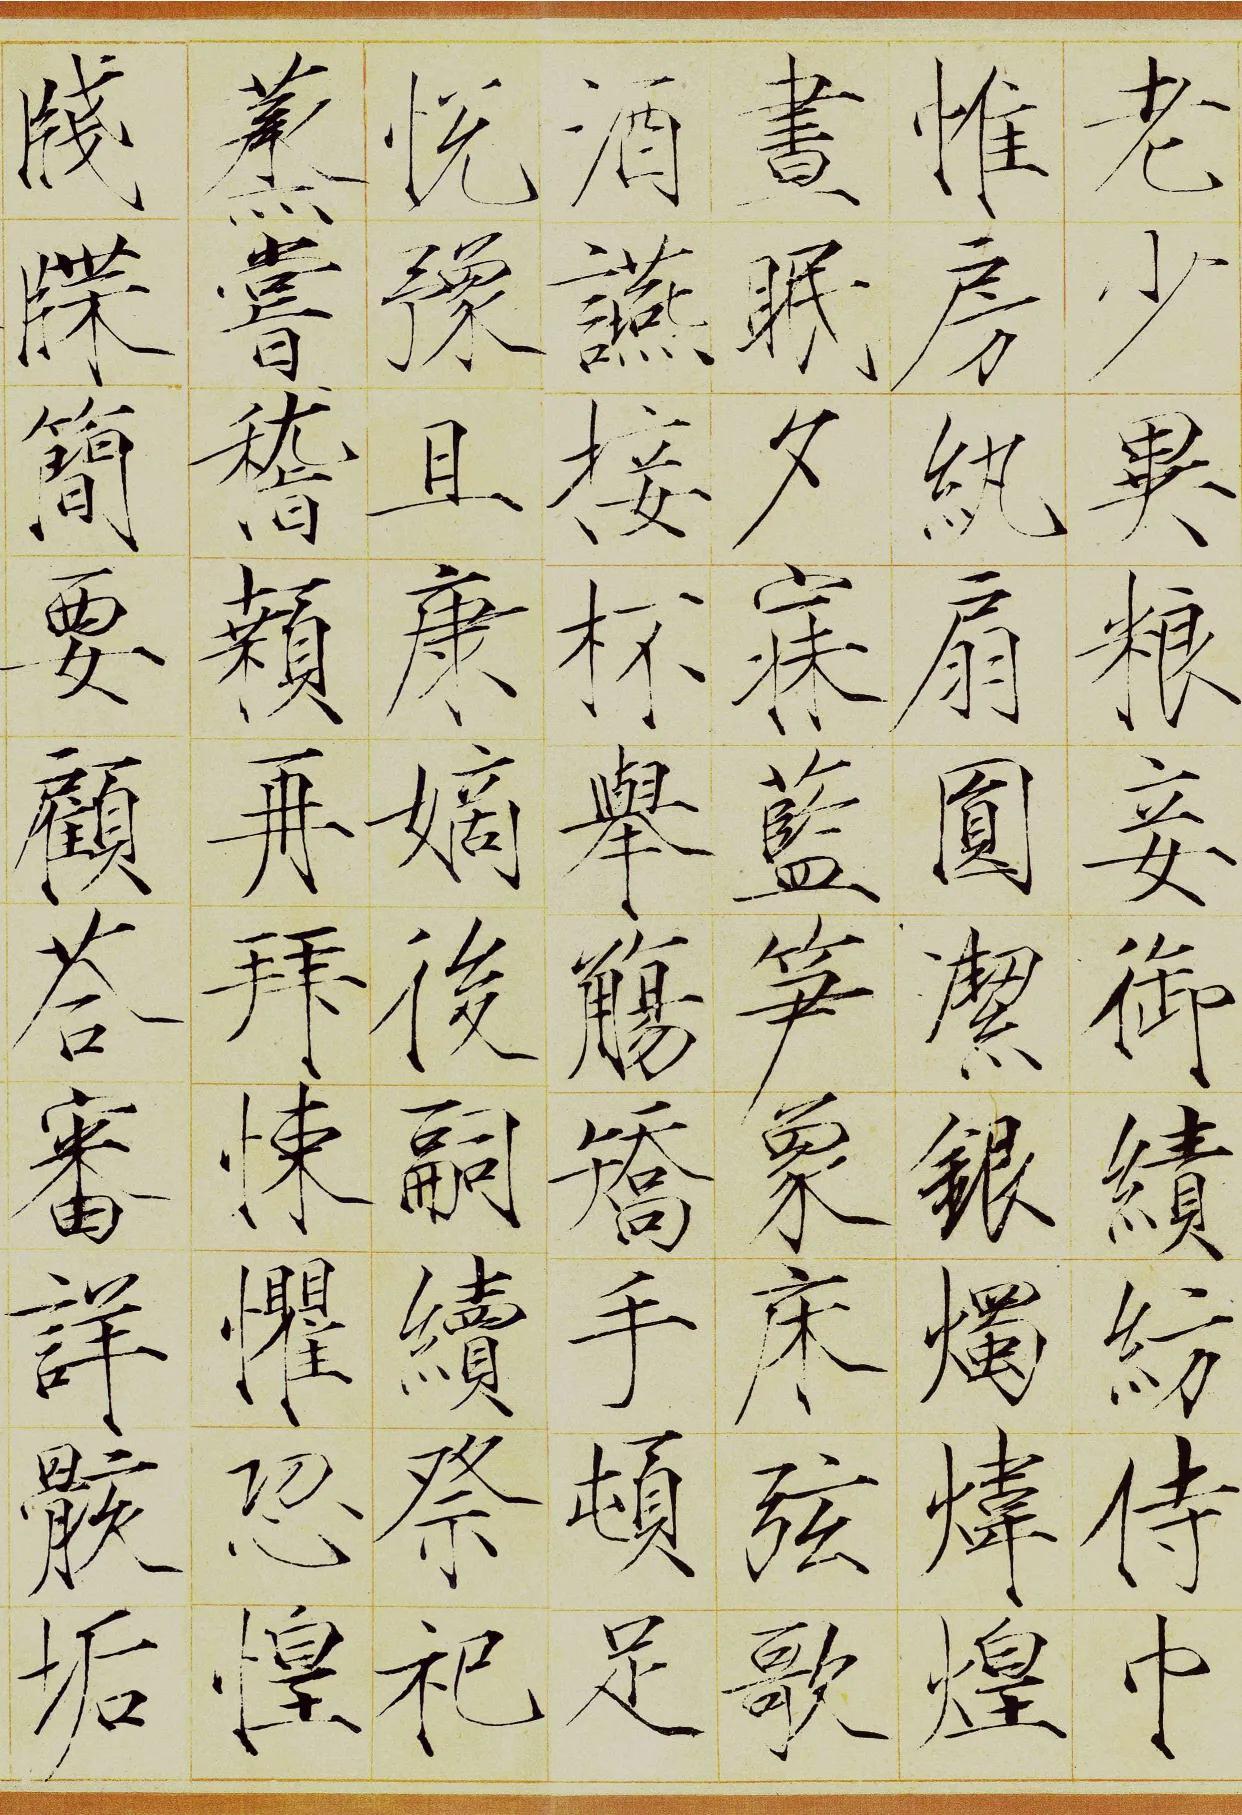 老少異粮妾御績紡侍巾
帷房紈扇圓潔銀燭煒煌
晝眠夕寐藍笋象床弦歌
酒讌接杯舉觴矯手頓足
悅豫且康嫡後嗣續祭祀
蒸嘗稽顙再拜悚懼恐惶
牋牒簡要顧荅審詳骸垢